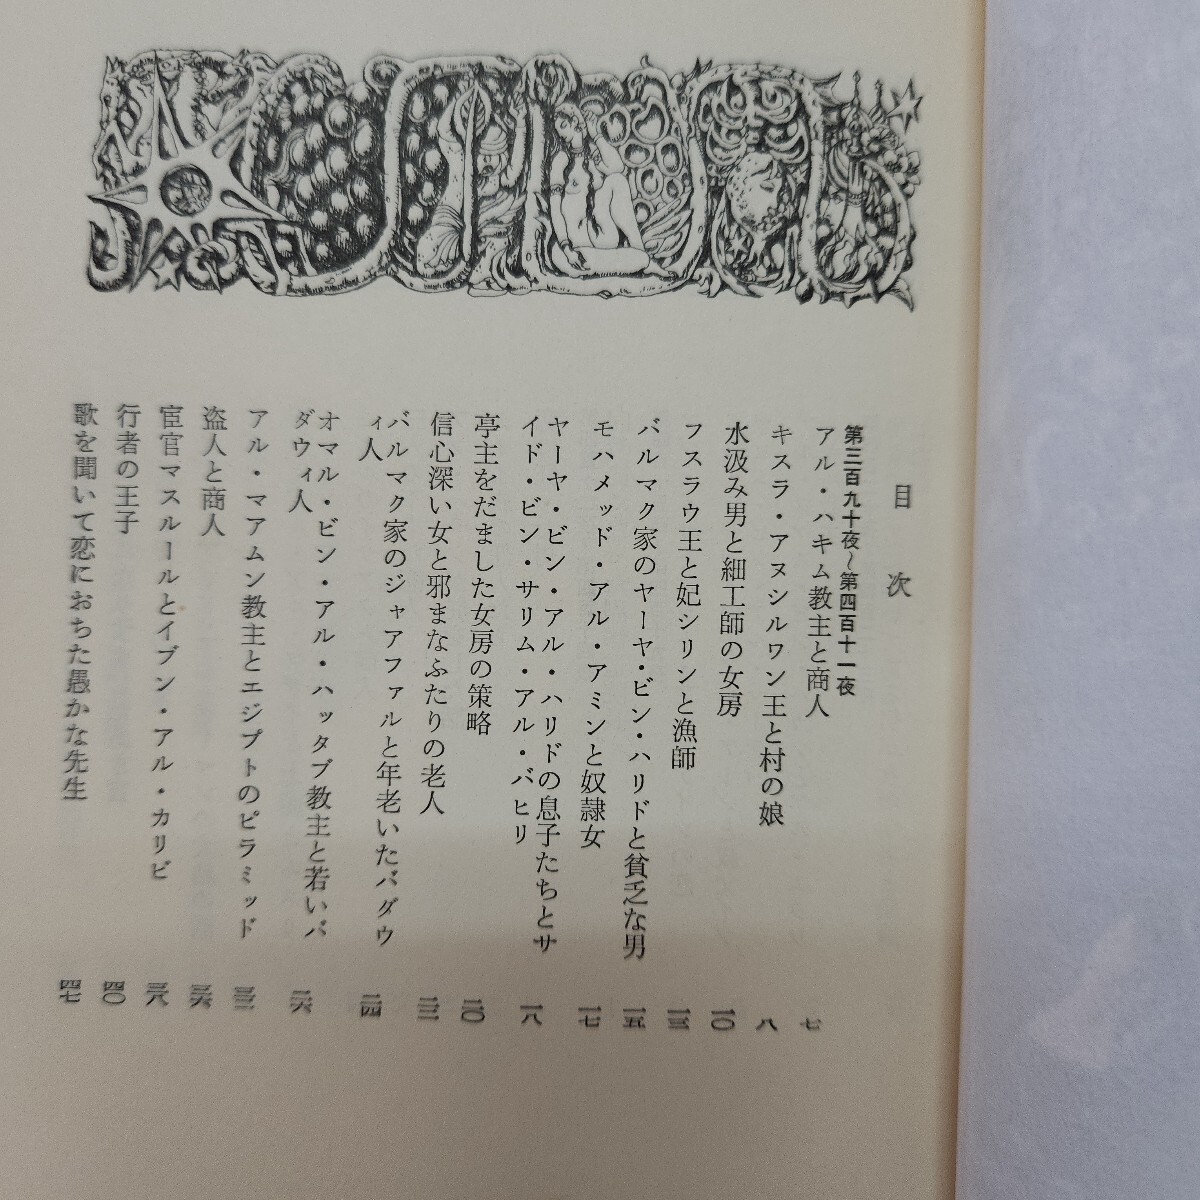 目次
第三百九十夜～第四百十一夜
アル・ハキム教主と商人 七
キスラ・アヌシルワン王と村の娘 八
水汲み男と細工師の女房 一〇
フスラウ王と妃シリンと漁師 一三
バルマク家のヤーヤ・ビン・ハリドと貧乏な男 一五
モハメッド・アル・アミンと奴隷女 一七
ヤーヤ・ビン・アル・ハリドの息子たちとサ
イド・ビン・サリム・アル・バヒリ 一八
亭主をだました女房の策略 二〇
信心深い女と邪まなふたりの老人 二二
バルマク家のジャアファルと年老いたバダウ
ィ人 二四
オマル・ビン・アル・ハッタブ教主と若いバ
ダウィ人 二六
アル・マアムン教主とエジプトのピラミッド
盗人と商人 三六
宦官マスルールとイブン・アル・カリビ 三八
行者の王子 四〇
歌を聞いて恋におちた愚かな先生 四七